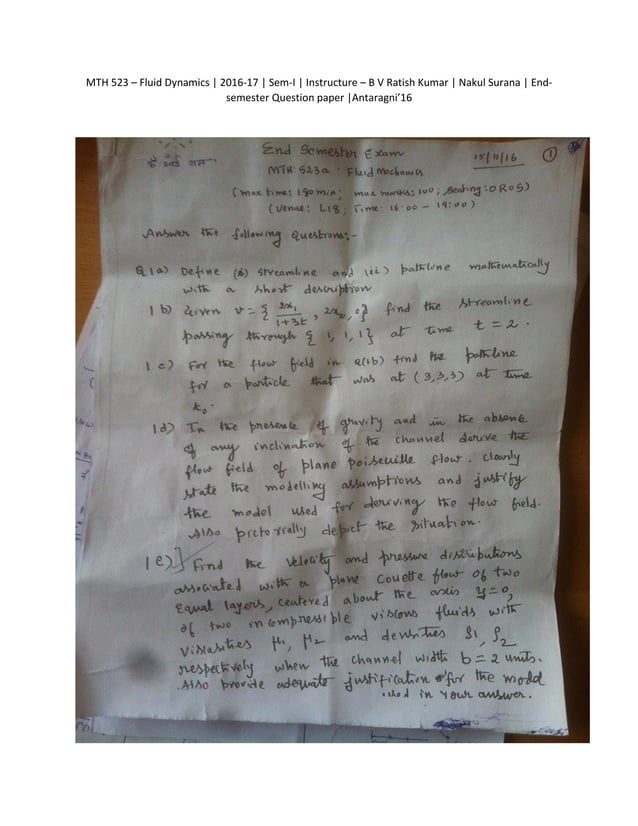 MTH 523 – Fluid Dynamics | 2016-17 | Sem-I | Instructure – B V Ratish Kumar | Nakul Surana | End-
semester Question paper |Antaragni’16
End Semester Exam 15/11/16 1
MTH:523a : Fluid Mechanics
(max time: 180min; max marks: 100; Seating: OROS)
(Venue: L18; Time: 16:00 – 19:00)
Answer the following Questions:-
Q1a) Define (i) streamline and (ii) pathline mathematically
with a short description
1b) Given v = { 2x₁/1+3t, 2x₂, 0} find the streamline
passing through { 1, 1, 1} at time t = 2.
1c) For the flow field in Q(1b) find the pathline
for a particle that was at (3,3,3) at time
t₀.
1d) In the presence of gravity and in the absence
of any inclination of the channel derive the
flow field of plane poiseuille flow. Clearly
state the modelling assumptions and justify
the model used for deriving the flow field.
Also pictorially depict the situation.
1e) Find the velocity and pressure distributions
associated with a plane Couette flow of two
Equal layers, centered about the axis y=0,
of two incompressible viscous fluids with
Viscosities μ₁, μ₂ and densities ρ₁, ρ₂
respectively when the channel width b = 2 units.
Also provide adequate justification for the model
used in your answer.